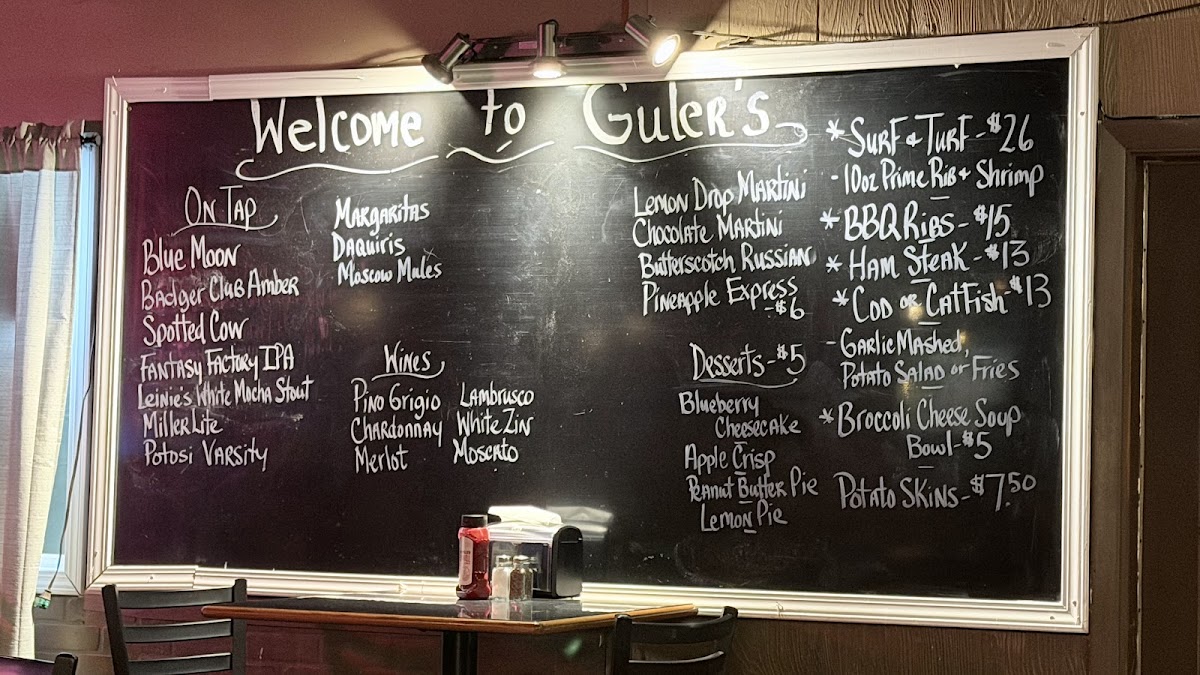 Welcome to Guler's
On Tap
Blue Moon
Badger Club Amber
Spotted Cow
Fantasy Factory IPA
Leinie's White Mocha Stout
Miller Lite
Potosi Varsity
Margaritas
Daquiris
Moscow Mules
Wines
Pino Grigio
Chardonnay
Merlot
Lambrusco
White Zin
Moscato
Lemon Drop Martini
Chocolate Martini
Butterscotch Russian
Pineapple Express
-$6
Desserts-$5
Blueberry
Cheesecake
Apple Crisp
Peanut Butter Pie
Lemon Pie
*Surf & Turf-$26
-10oz Prime Rib & Shrimp
*BBQ Ribs-$15
*Ham Steak-$13
*Cod or Catfish-$13
-Garlic Mashed,
Potato Salad or Fries
*Broccoli Cheese Soup
Bowl-$5
Potato Skins-$7.50